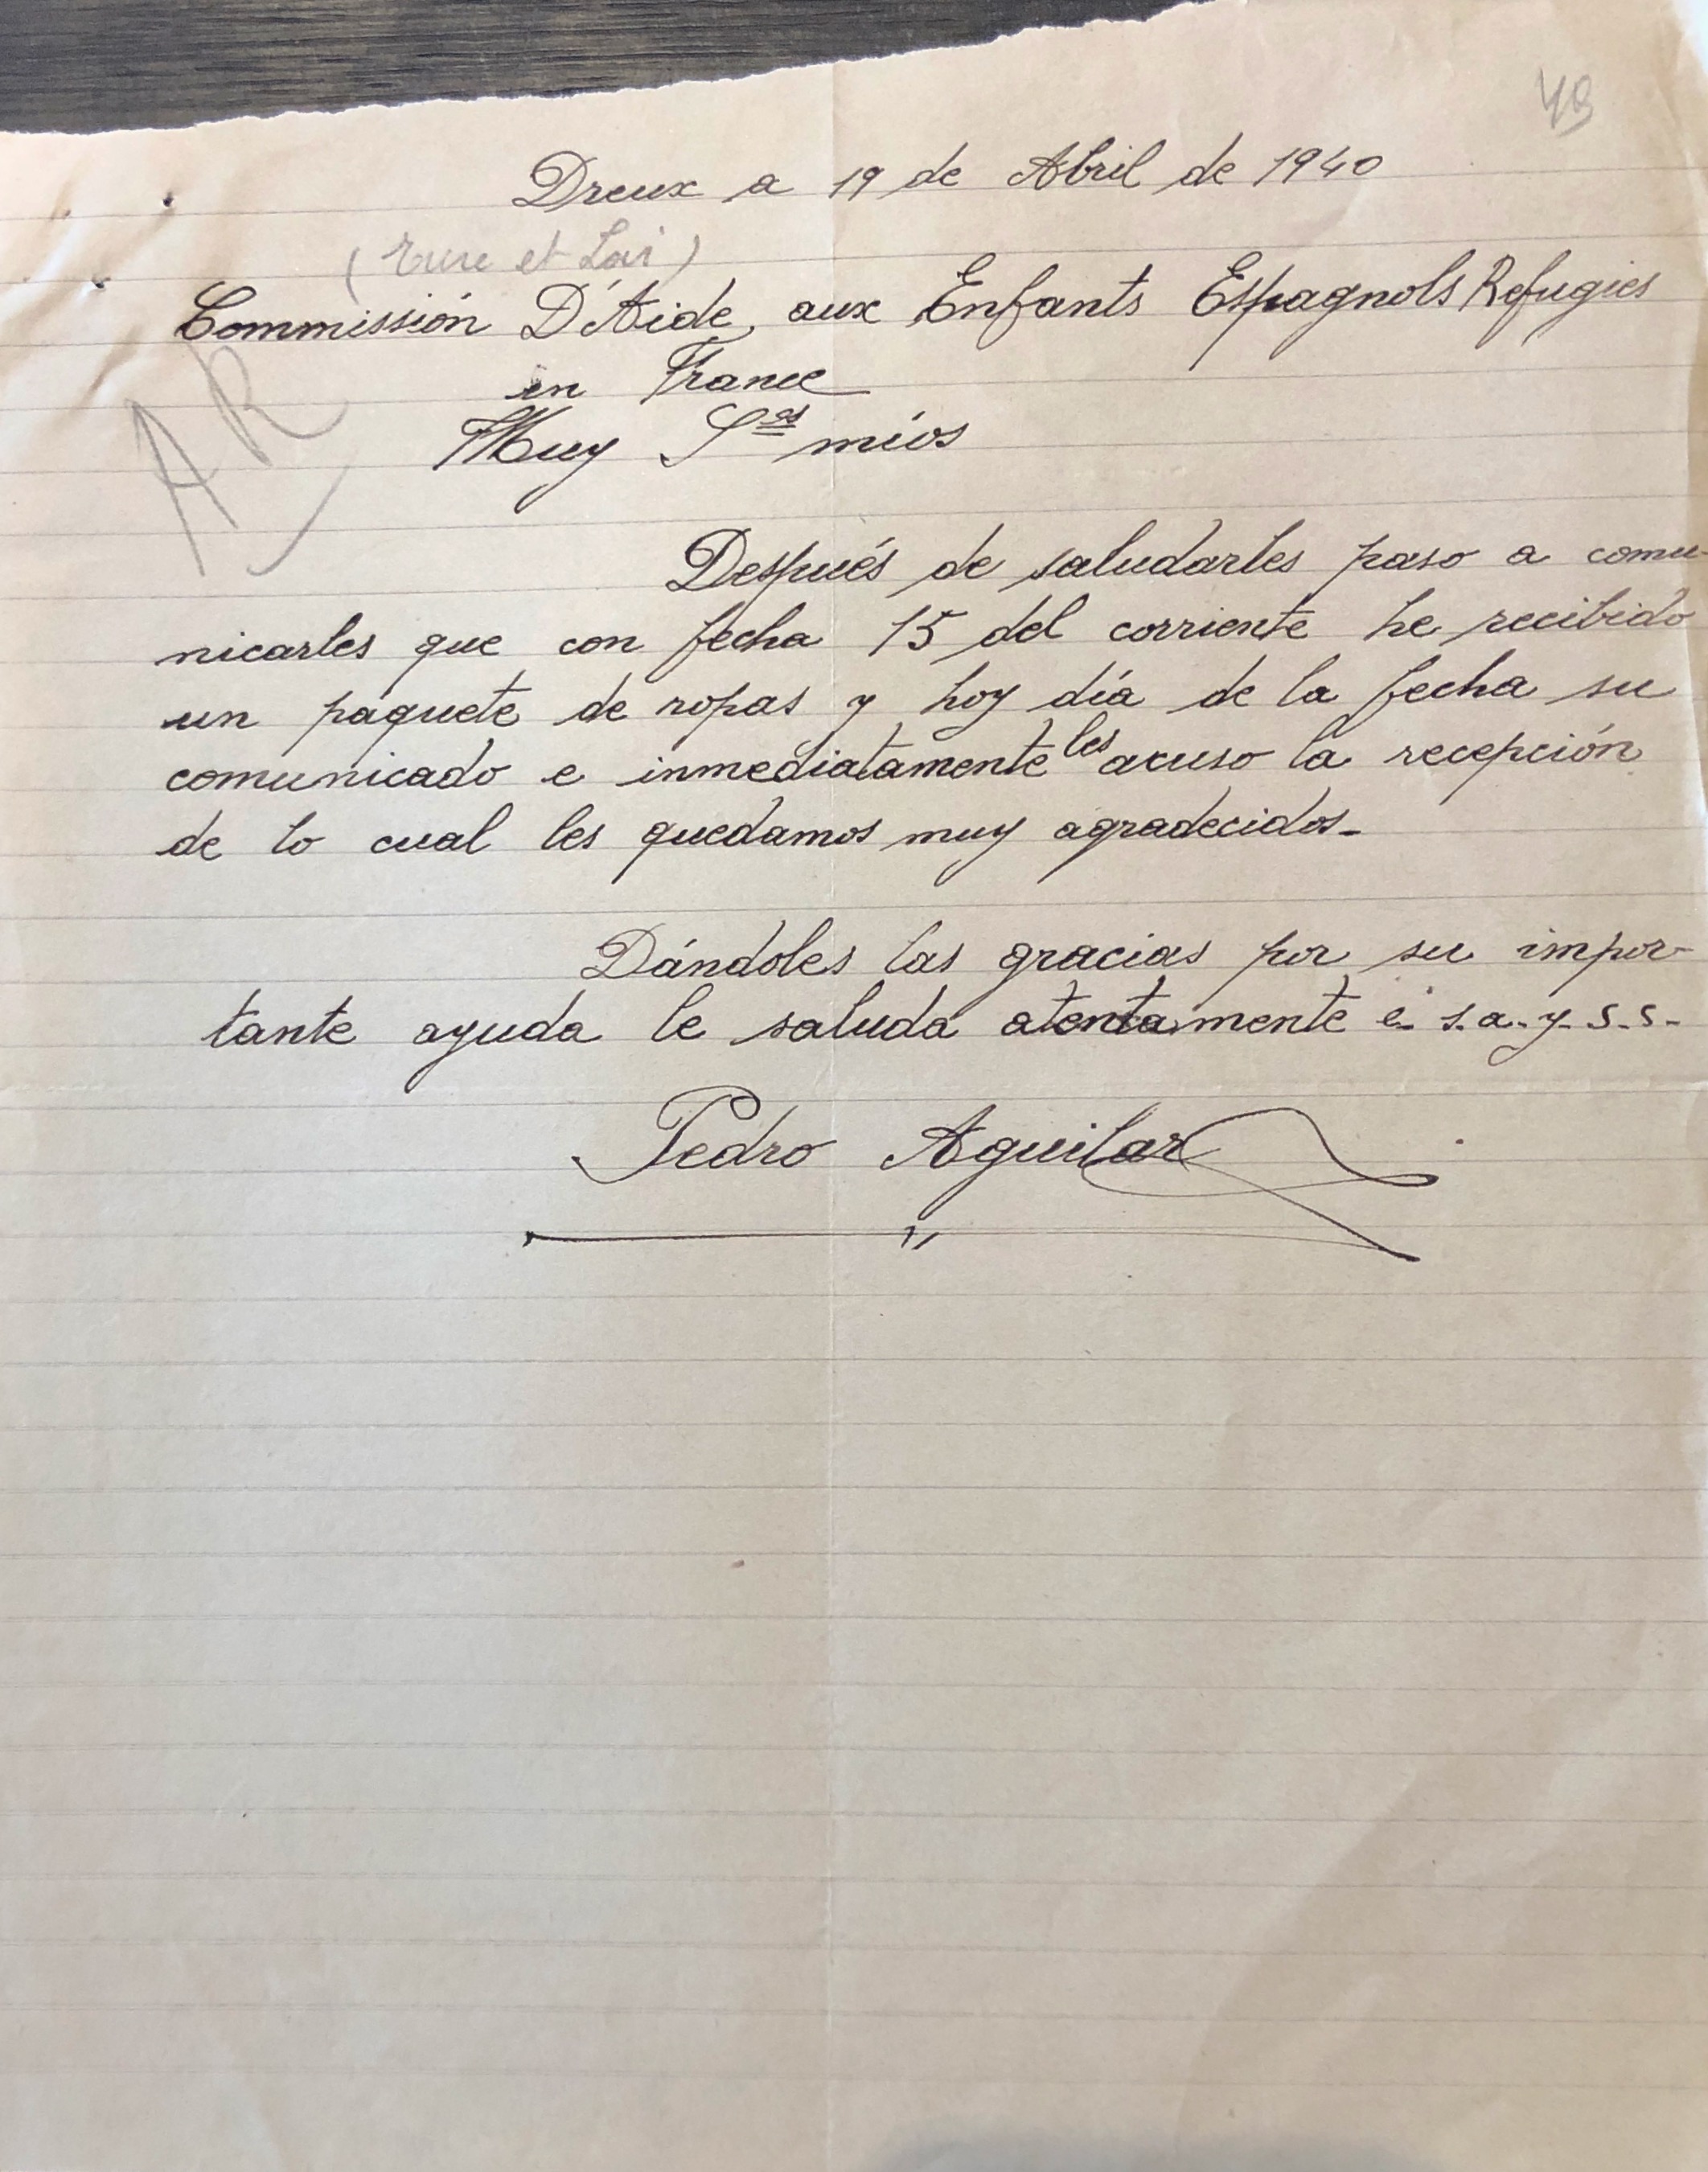 49
Dreux a 19 de Abril de 1940
(Eure et Loir)
Commissión D'Aide, aux Enfants Espagnols Refugies
en France
AR
Muy Sres mios
Después de saludarles paso a comu-
nicarles que con fecha 15 del corriente he recibido
un paquete de ropas y hoy día de la fecha su
comunicado e inmediatamente les acuso la recepción
de lo cual les quedamos muy agradecidos-
Dándoles las gracias por su impor-
tante ayuda le saluda atentamente e. s.a.y.s.s.
Pedro Aguilar